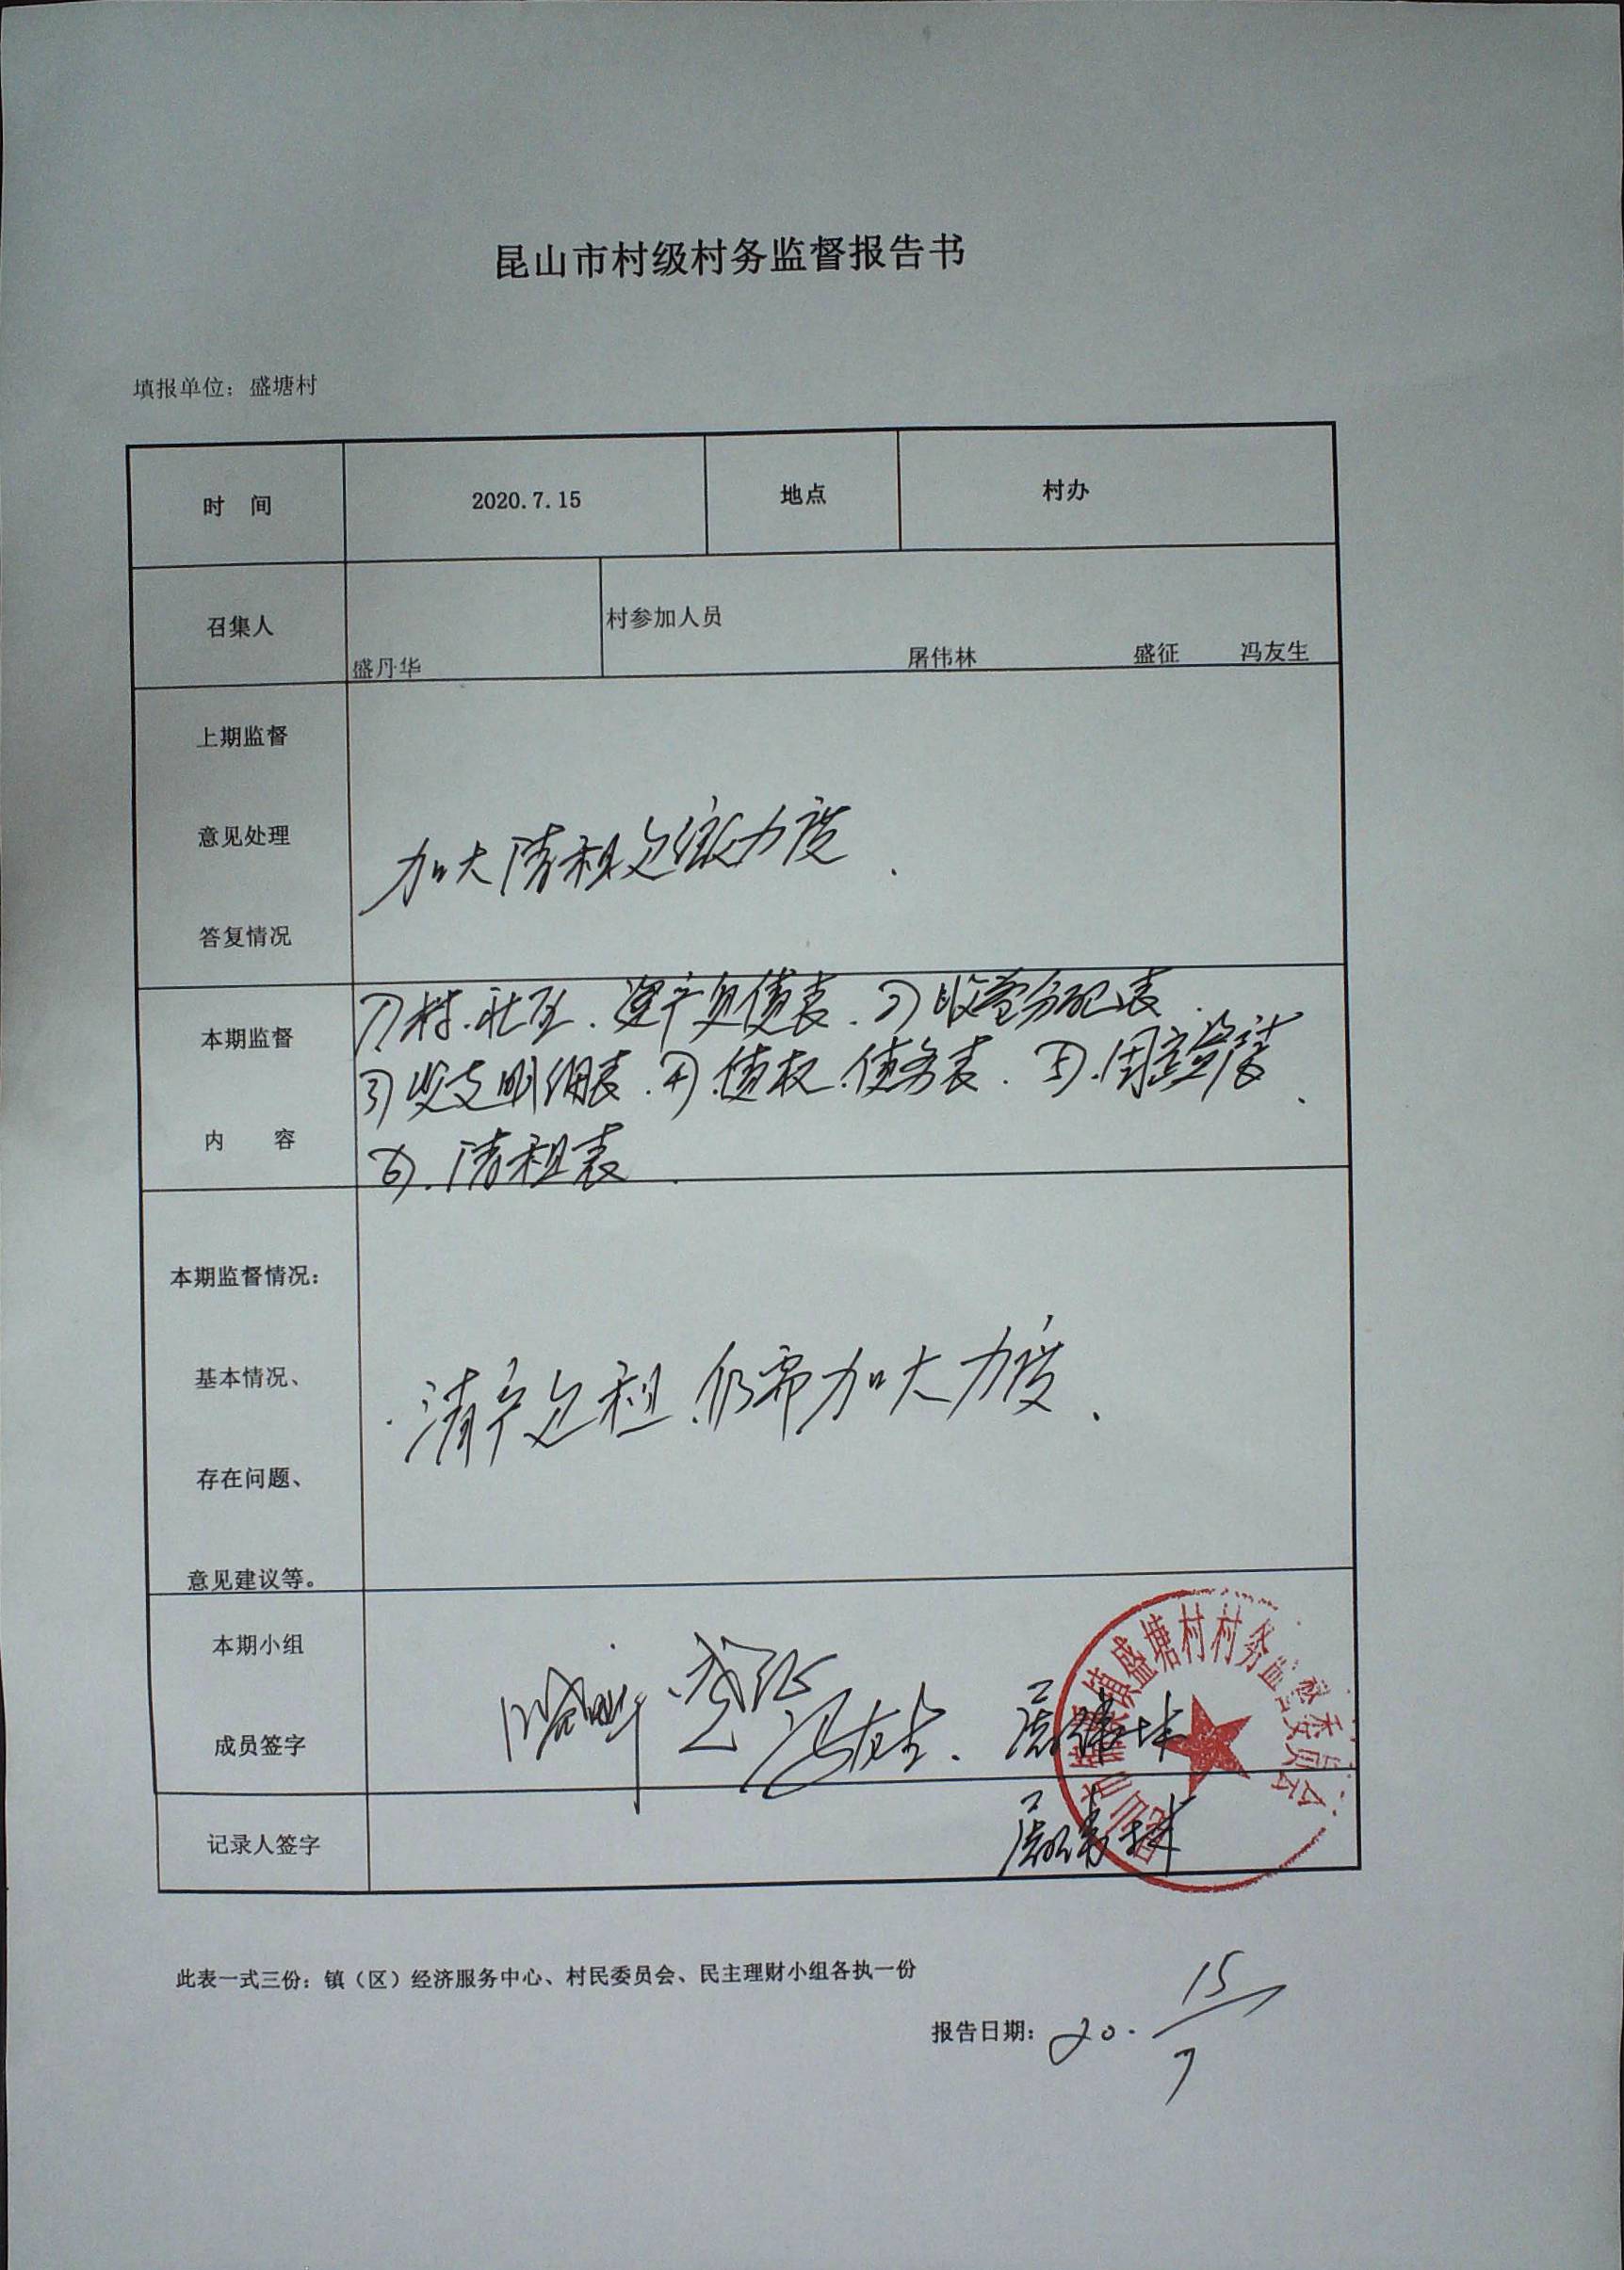 昆山市村级村务监督报告书
填报单位：盛塘村
时 间 2020.7.15 地点 村办
召集人 盛丹华 村参加人员 屠伟林 盛征 冯友生
上期监督
意见处理
答复情况
加大清租足缴力度.
本期监督
内 容
1)村.社区.资产负债表.2)收益分配表.
3)收支明细表.4).债权.债务表.5).固定资产
6).清租表.
本期监督情况：
基本情况、
存在问题、
意见建议等。
.清产足租.仍需加大力度.
本期小组
成员签字
盛征 冯友生. 屠伟林
记录人签字
屠伟林
镇盛塘村村务监督委员会
此表一式三份：镇（区）经济服务中心、村民委员会、民主理财小组各执一份
报告日期：20.15/7